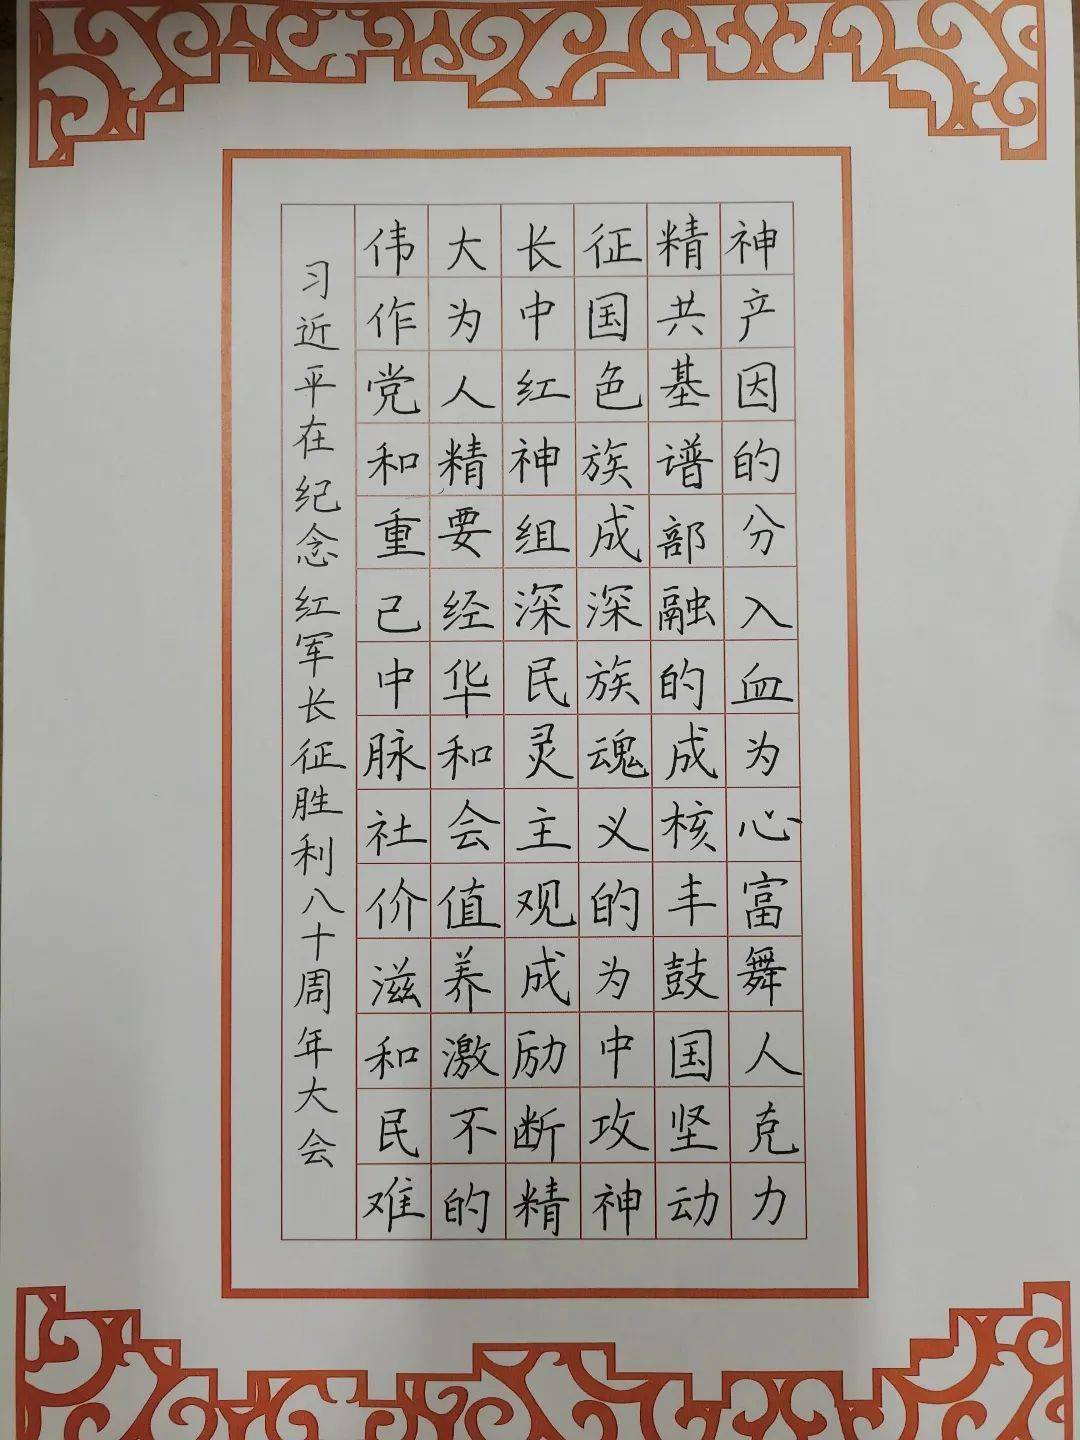 伟大长征精神
作为中国共产
党人红色基因
和精神族谱的
重要组成部分
已经深深融入
中华民族的血
脉和灵魂成为
社会主义核心
价值观的丰富
滋养成为鼓舞
和激励中国人
民不断攻坚克
难的精神动力
习近平在纪念红军长征胜利八十周年大会